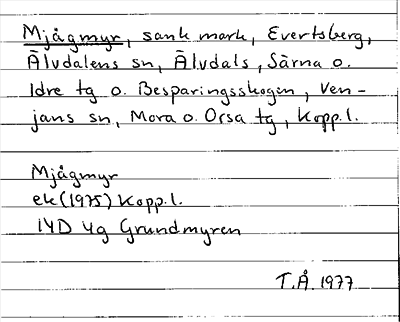 Mjågmyr, sank mark, Evertsberg,
Älvdalens sn, Älvdals, Särna o.
Idre tg o. Besparingsskogen, Ven-
jans sn, Mora o. Orsa tg, Kopp. l.
Mjågmyr
ek (1975) Kopp. l.
14D 4g Grundmyren
T.Å. 1977